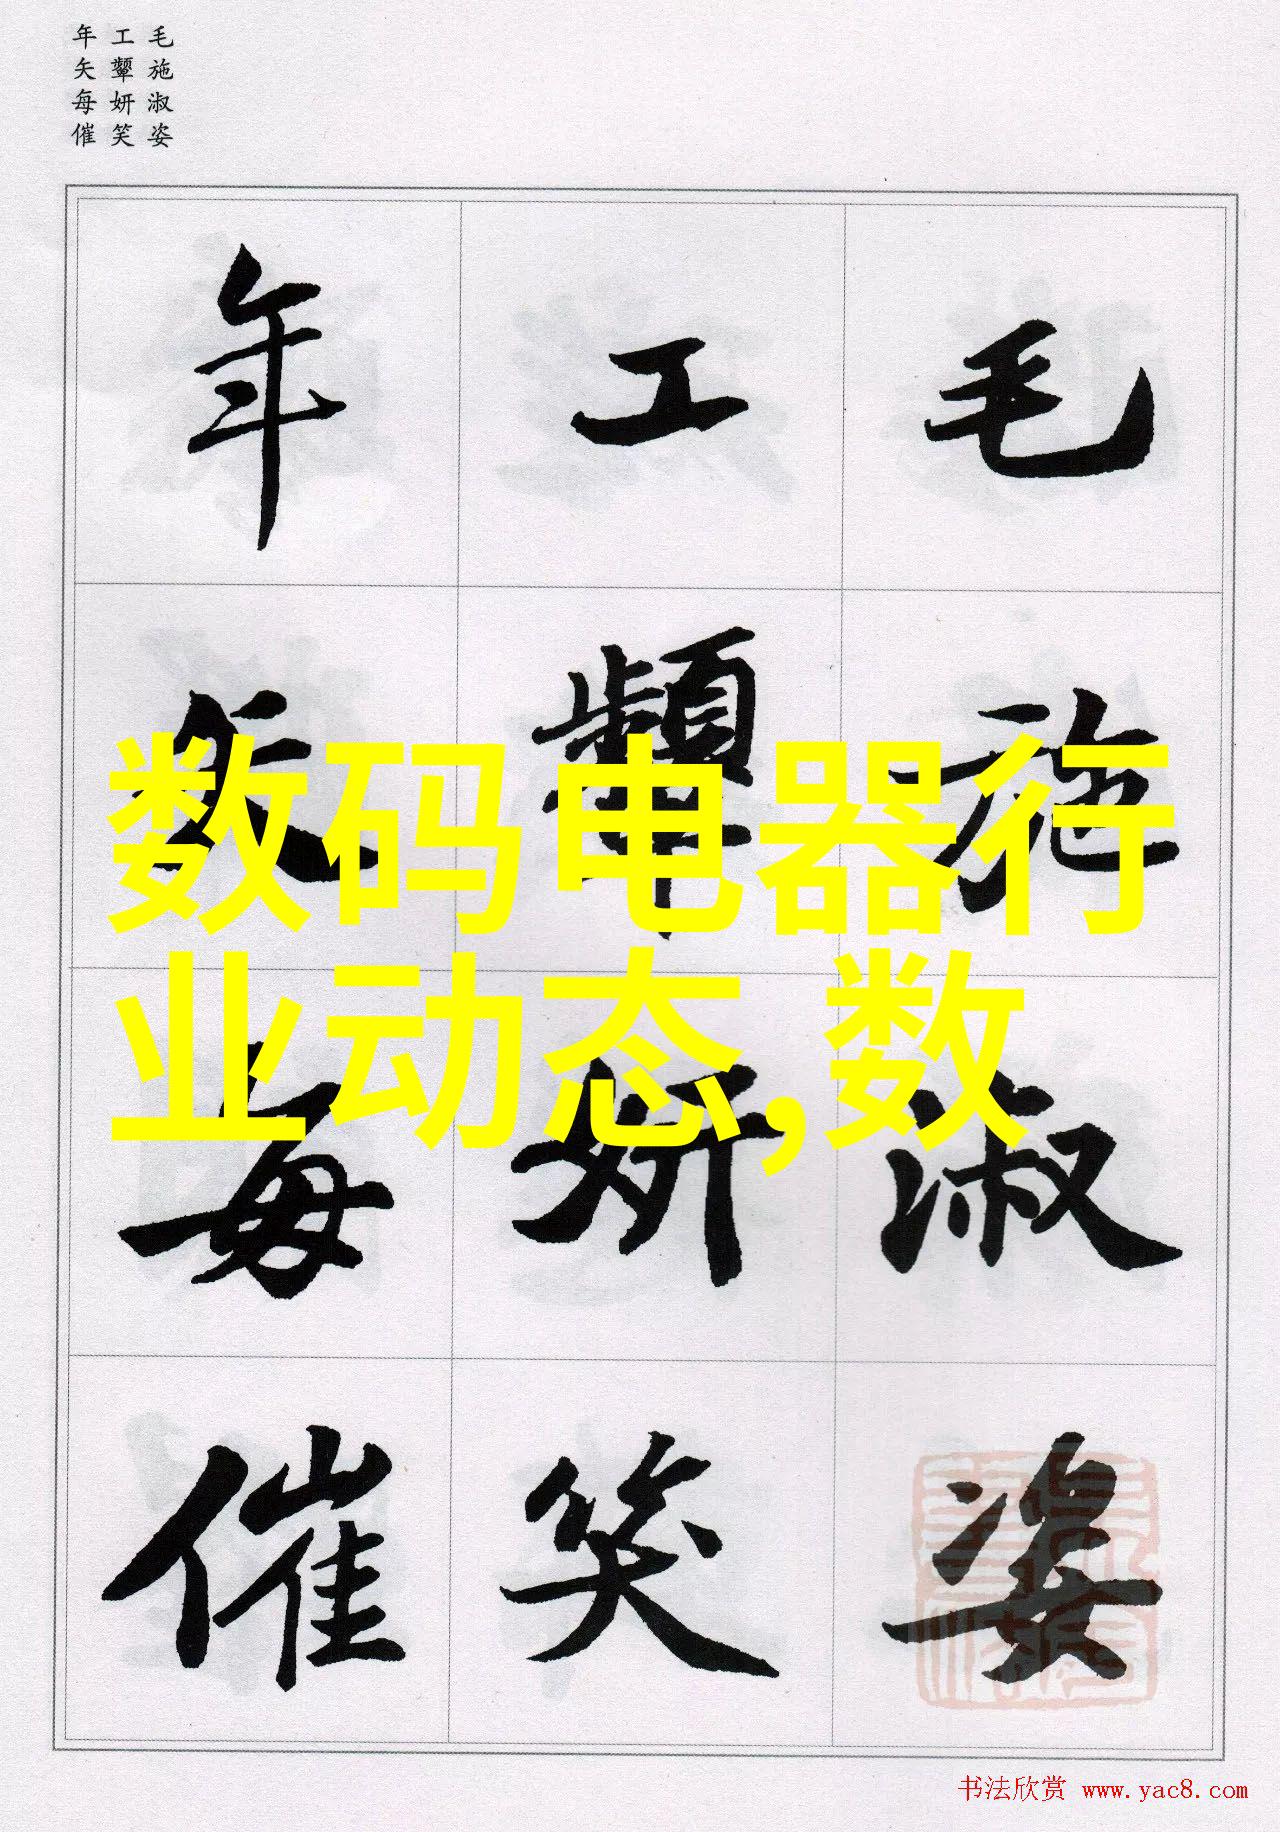 毛施淑姿
工颦妍笑
年矢每催
毛施淑姿
工颦妍笑
年矢每催
数码电器行
业动态,数
书法欣赏 www.yac8.com